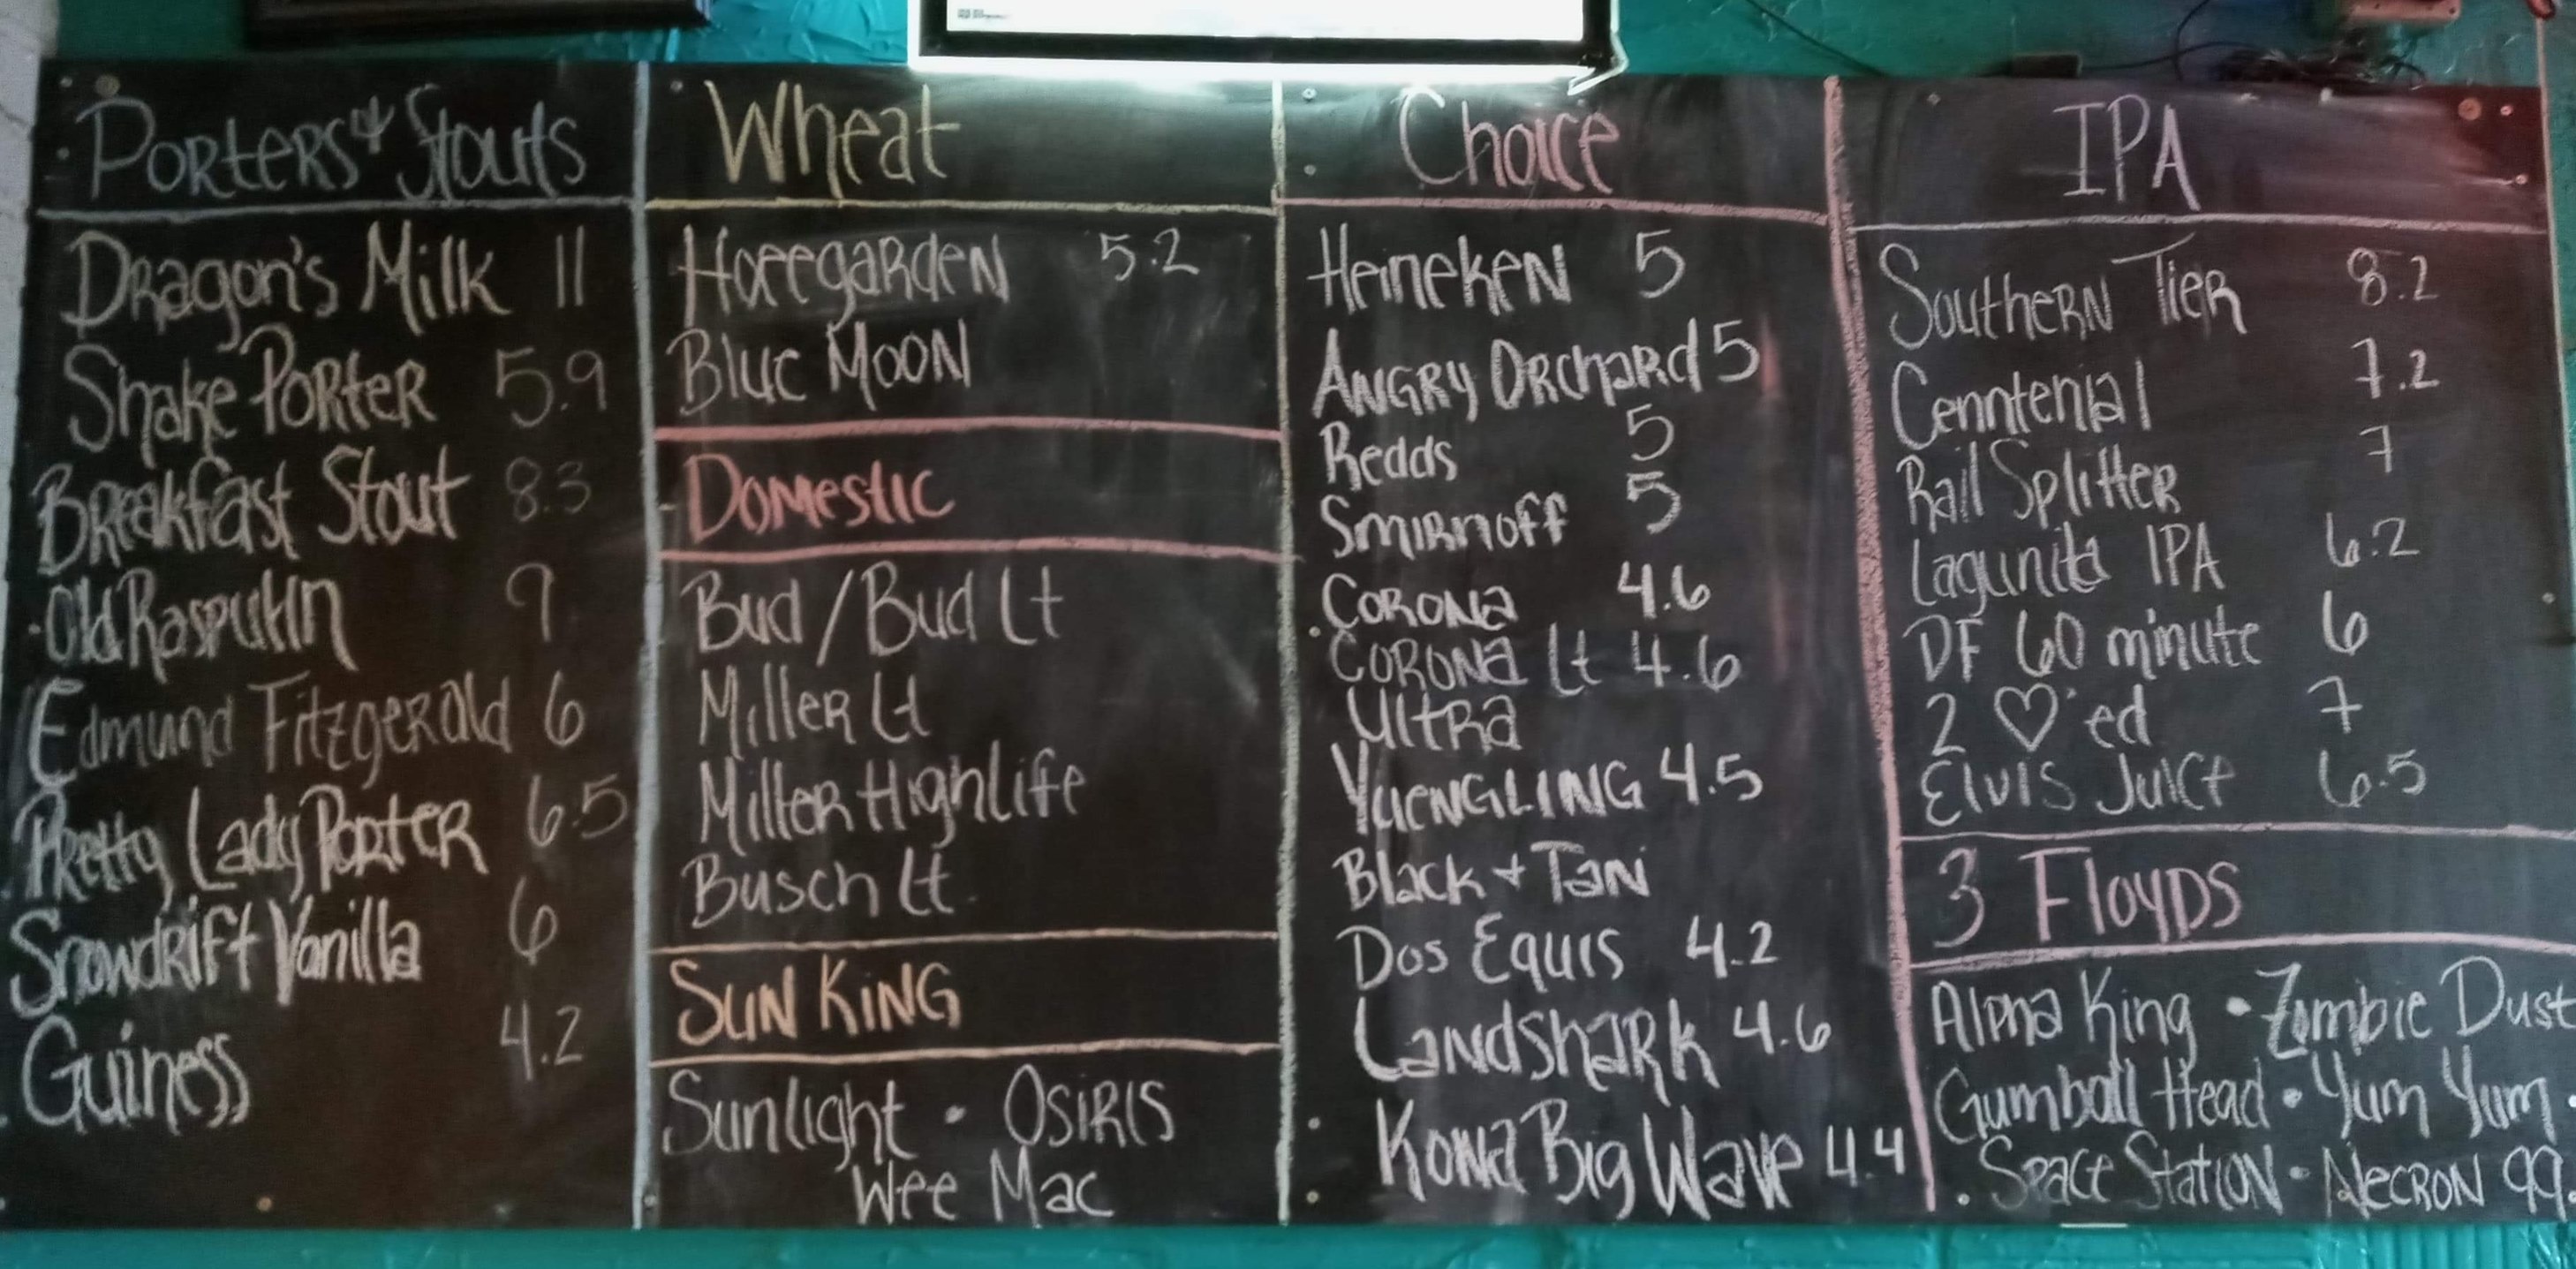 Porters & Stouts
Dragon's Milk 11
Shake Porter 5.9
Breakfast Stout 8.3
Old Rasputin 9
Edmund Fitzgerald 6
Pretty Lady Porter 6.5
Snowdrift Vanilla 6
Guiness 4.2
Wheat
Hoeegarden 5.2
Blue Moon
Domestic
Bud / Bud Lt
Miller Lt
Miller Highlife
Busch Lt.
Sun King
Sunlight • Osiris
Wee Mac
Choice
Heineken 5
Angry Orchard 5
Redds 5
Smirnoff 5
Corona 4.6
Corona Lt 4.6
Ultra
Yuengling 4.5
Black + Tan
Dos Equis 4.2
Landshark 4.6
Kona Big Wave 4.4
IPA
Southern Tier 8.2
Cenntenial 7.2
Rail Splitter 7
Lagunita IPA 6.2
DF 60 minute 6
2 ♡'ed 7
Elvis Juice 6.5
3 Floyds
Alpha King • Zombie Dust
Gumball Head • Yum Yum •
• Space Station • Necron 99